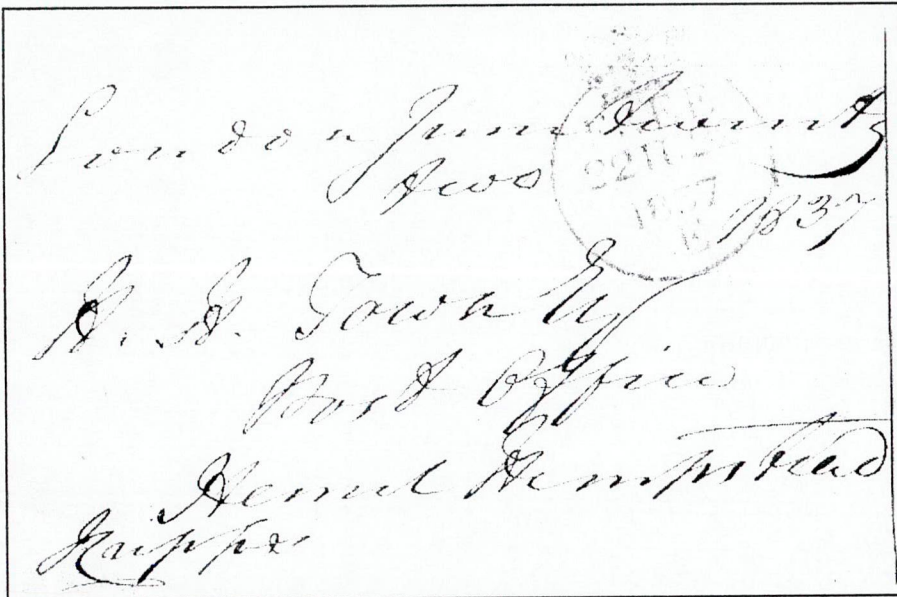 London June Twenty
two
1837
FREE
22JU22
1837
H. H. Town Esq
Post Office
Hemel Hempstead